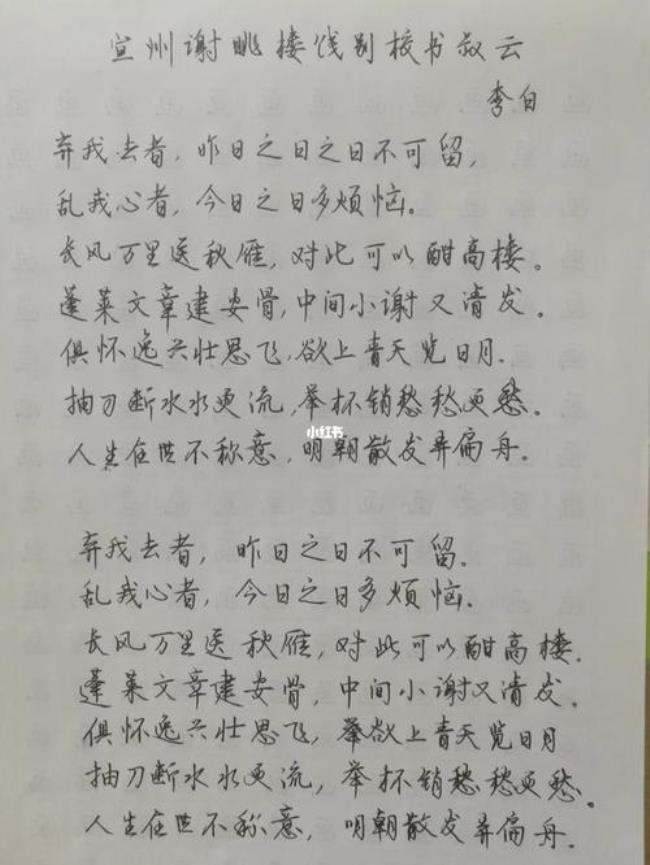 宣州谢眺楼饯别校书叔云
李白
弃我去者，昨日之日之日不可留，
乱我心者，今日之日多烦恼。
长风万里送秋雁，对此可以酣高楼。
蓬莱文章建安骨，中间小谢又清发。
俱怀逸兴壮思飞，欲上青天览日月．
抽刀断水水更流，举杯销愁愁更愁。
小红书
人生在世不称意，明朝散发弄扁舟。
弃我去者，昨日之日不可留。
乱我心者，今日之日多烦恼．
长风万里送秋雁，对此可以酣高楼．
蓬莱文章建安骨，中间小谢又清发。
俱怀逸兴壮思飞，欲上青天览日月
抽刀断水水更流，举杯销愁愁更愁。
人生在世不称意，明朝散发弄扁舟．